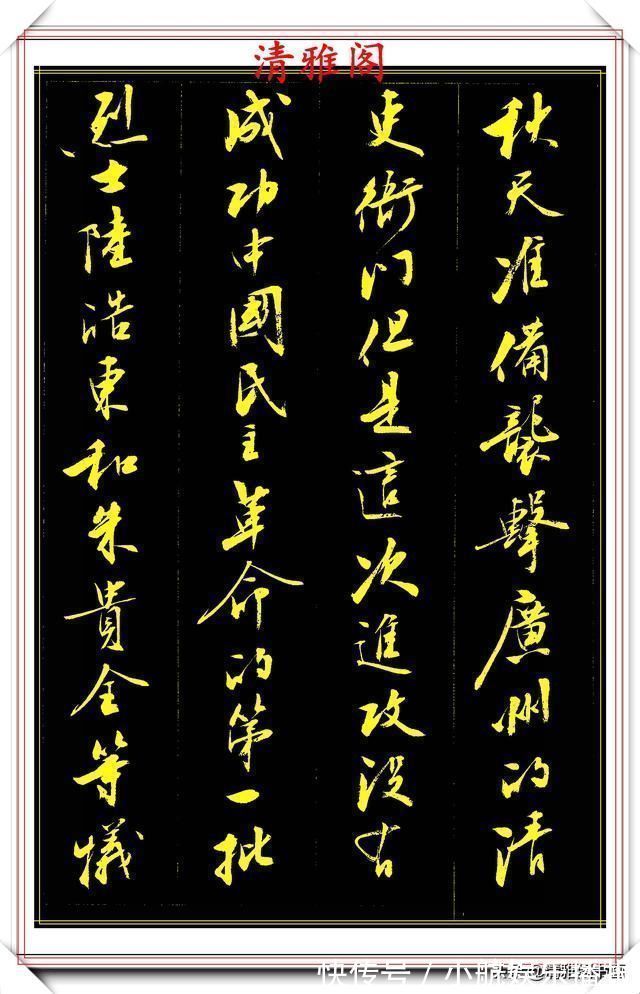 清雅阁
秋天准備襲擊廣州的清
吏衙门但是這次進攻没有
成功中國民主革命的第一批
烈士陸浩東和朱貴全等犧
快传号/小